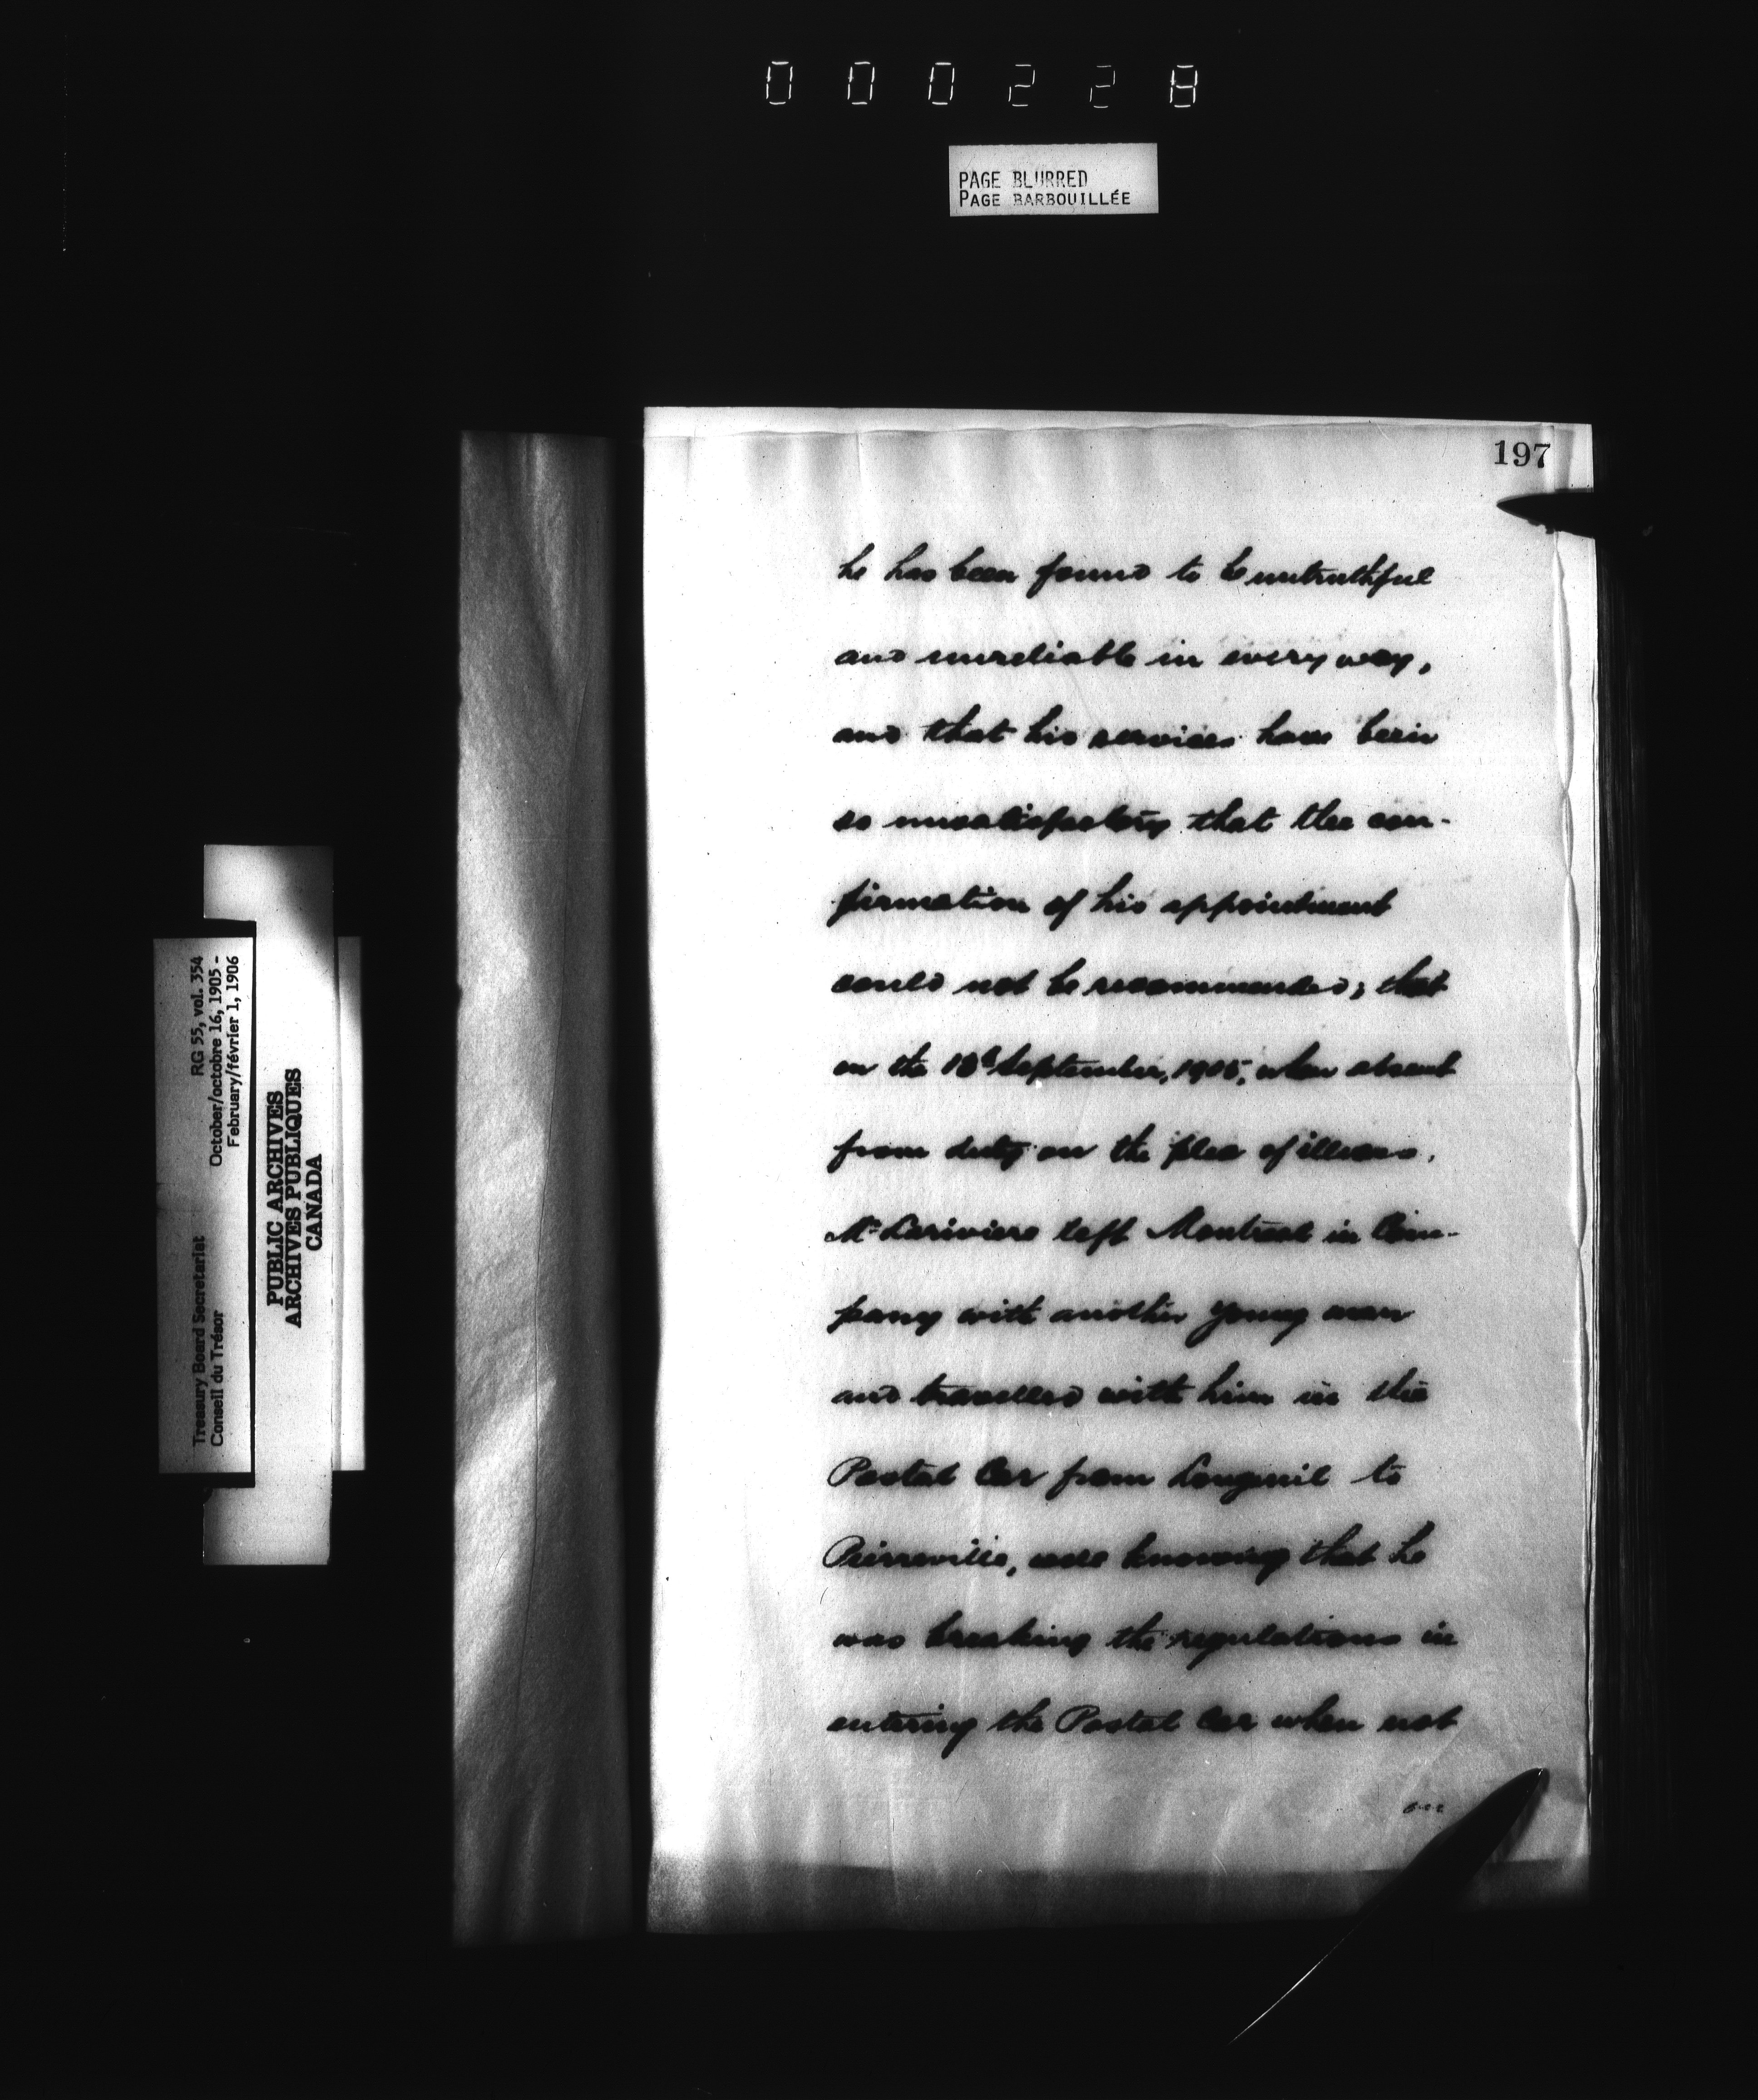 000228
PAGE BLURRED
PAGE BARBOUILLÉE
197
he has been found to be untruthful
and unreliable in every way,
and that his services have been
so unsatisfactory that the con-
firmation of his appointment
could not be recommended; that
on the 18th September, 1905, when absent
from duty on the plea of illness,
Mr Lariviere left Montreal in Com-
pany with another young man
and travelled with him in the
Postal Car from Longueuil to
Pierreville, well knowing that he
was breaking the regulations in
entering the Postal Car when not
on
Treasury Board Secretariat RG 55, vol. 354
Conseil du Trésor October/octobre 16, 1905 -
February/février 1, 1906
PUBLIC ARCHIVES
ARCHIVES PUBLIQUES
CANADA